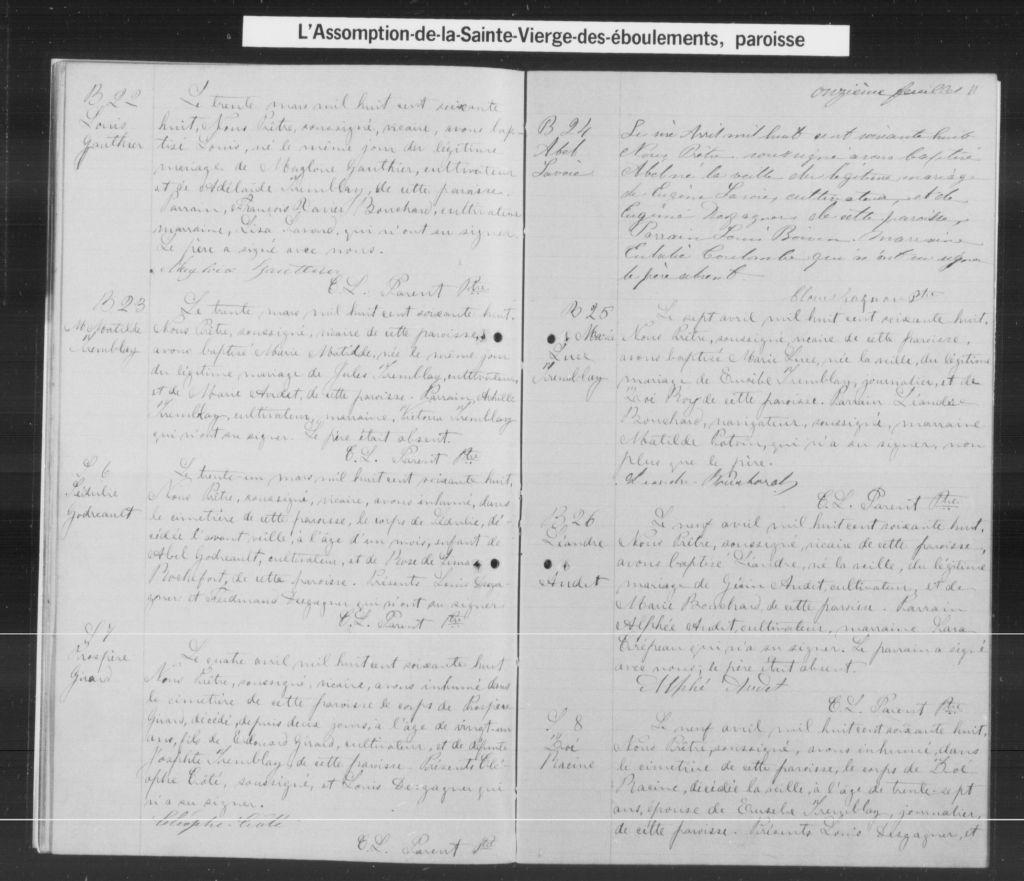 L'Assomption-de-la-Sainte-Vierge-des-éboulements, paroisse
B 22
Louis
Gauthier
Le trente mars mil huit cent soixante
huit, Nous Prêtre, soussigné, vicaire, avons bap-
tisé Louis, né le même jour du légitime
mariage de Magloire Gauthier, cultivateur
et de Adélaide Tremblay, de cette paroisse.
Parrain, François Xavier Bouchard, cultivateur
marraine, Lisa Savard, qui n'ont su signer.
Le père a signé avec nous.
Gauthier
C. L. Parent Ptre
B 23
M. Matilde
Tremblay
Le trente mars mil huit cent soixante huit,
Nous Prêtre, soussigné, vicaire de cette paroisse,
avons baptisé Marie Matilde, née le même jour
du légitime mariage de Jules Tremblay, cultivateur,
et de Marie Audet, de cette paroisse. Parrain, Achille
Tremblay, cultivateur, marraine, Victoria Tremblay
qui n'ont su signer. Le père était absent.
C. L. Parent Ptre
S. 6
Godreault
Le trente-un mars, mil huit cent soixante huit,
Nous Prêtre, soussigné, vicaire, avons inhumé, dans
le cimetière de cette paroisse, le corps de dé-
cédée l'avant veille, à l'âge d'un mois, enfant de
Abel Godreault, cultivateur, et de Rose de Lima
Rochefort, de cette paroisse. Présents Louis Desga-
gner et Ferdinand Desgagner qui n'ont su signer
C. L. Parent Ptre
S 7
Prospère
Girard
Le quatre avril mil huit cent soixante huit
Nous Prêtre, soussigné, vicaire, avons inhumé dans
le cimetière de cette paroisse le corps de Prospère
Girard, décédé, depuis deux jours, à l'âge de vingt-un
ans, fils de Edouard Girard, cultivateur, et de défunte
Josephte Tremblay, de cette paroisse. Présents Clé-
ophe Côté, soussigné, et Louis Desgagner qui
n'a su signer.
Cléophe Côté
C. L. Parent Ptre
onzième feuillet 11
B 24
Abel
Savoie
Le six Avril mil huit cent soixante huit
Nous Prêtre soussigné avons baptisé
Abel né la veille du légitime mariage
de Eugène Savoie, cultivateur, et de
Desgagnés de cette paroisse,
Parrain Boivin Marraine
Eulalie Coulombe qui n'ont su signer
le père absent
Ptre
B 25
Marie
Luce
Tremblay
Le sept avril mil huit cent soixante huit,
Nous Prêtre, soussigné, vicaire de cette paroisse,
avons baptisé Marie Luce, née la veille, du légitime
mariage de Eusèbe Tremblay, journalier, et de
Zoé Roy de cette paroisse. Parrain Léandre
Bouchard, navigateur, soussigné, marraine
Matilde Potvin, qui n'a su signer, non
plus que le père.
Léandre Bouchard
C. L. Parent Ptre
B 26
Léandre
Audet
Le neuf avril mil huit cent soixante huit,
Nous Prêtre, soussigné, vicaire de cette paroisse,
avons baptisé Léandre, né la veille, du légitime
mariage de Audet, cultivateur, et de
Marie Bouchard, de cette paroisse. Parrain
Alphée Audet, cultivateur, marraine
Crépeau qui n'a su signer. Le parrain a signé
avec nous; le père était absent.
Alphé Audet
C. L. Parent Ptre
S. 8
Zoé
Racine
Le neuf avril, mil huit cent soixante huit,
Nous Prêtre, soussigné, avons inhumé, dans
le cimetière de cette paroisse, le corps de Zoé
Racine, décédée la veille, à l'âge de trente-sept
ans, épouse de Eusèbe Tremblay, journalier,
de cette paroisse. Présents Louis Desgagner, et